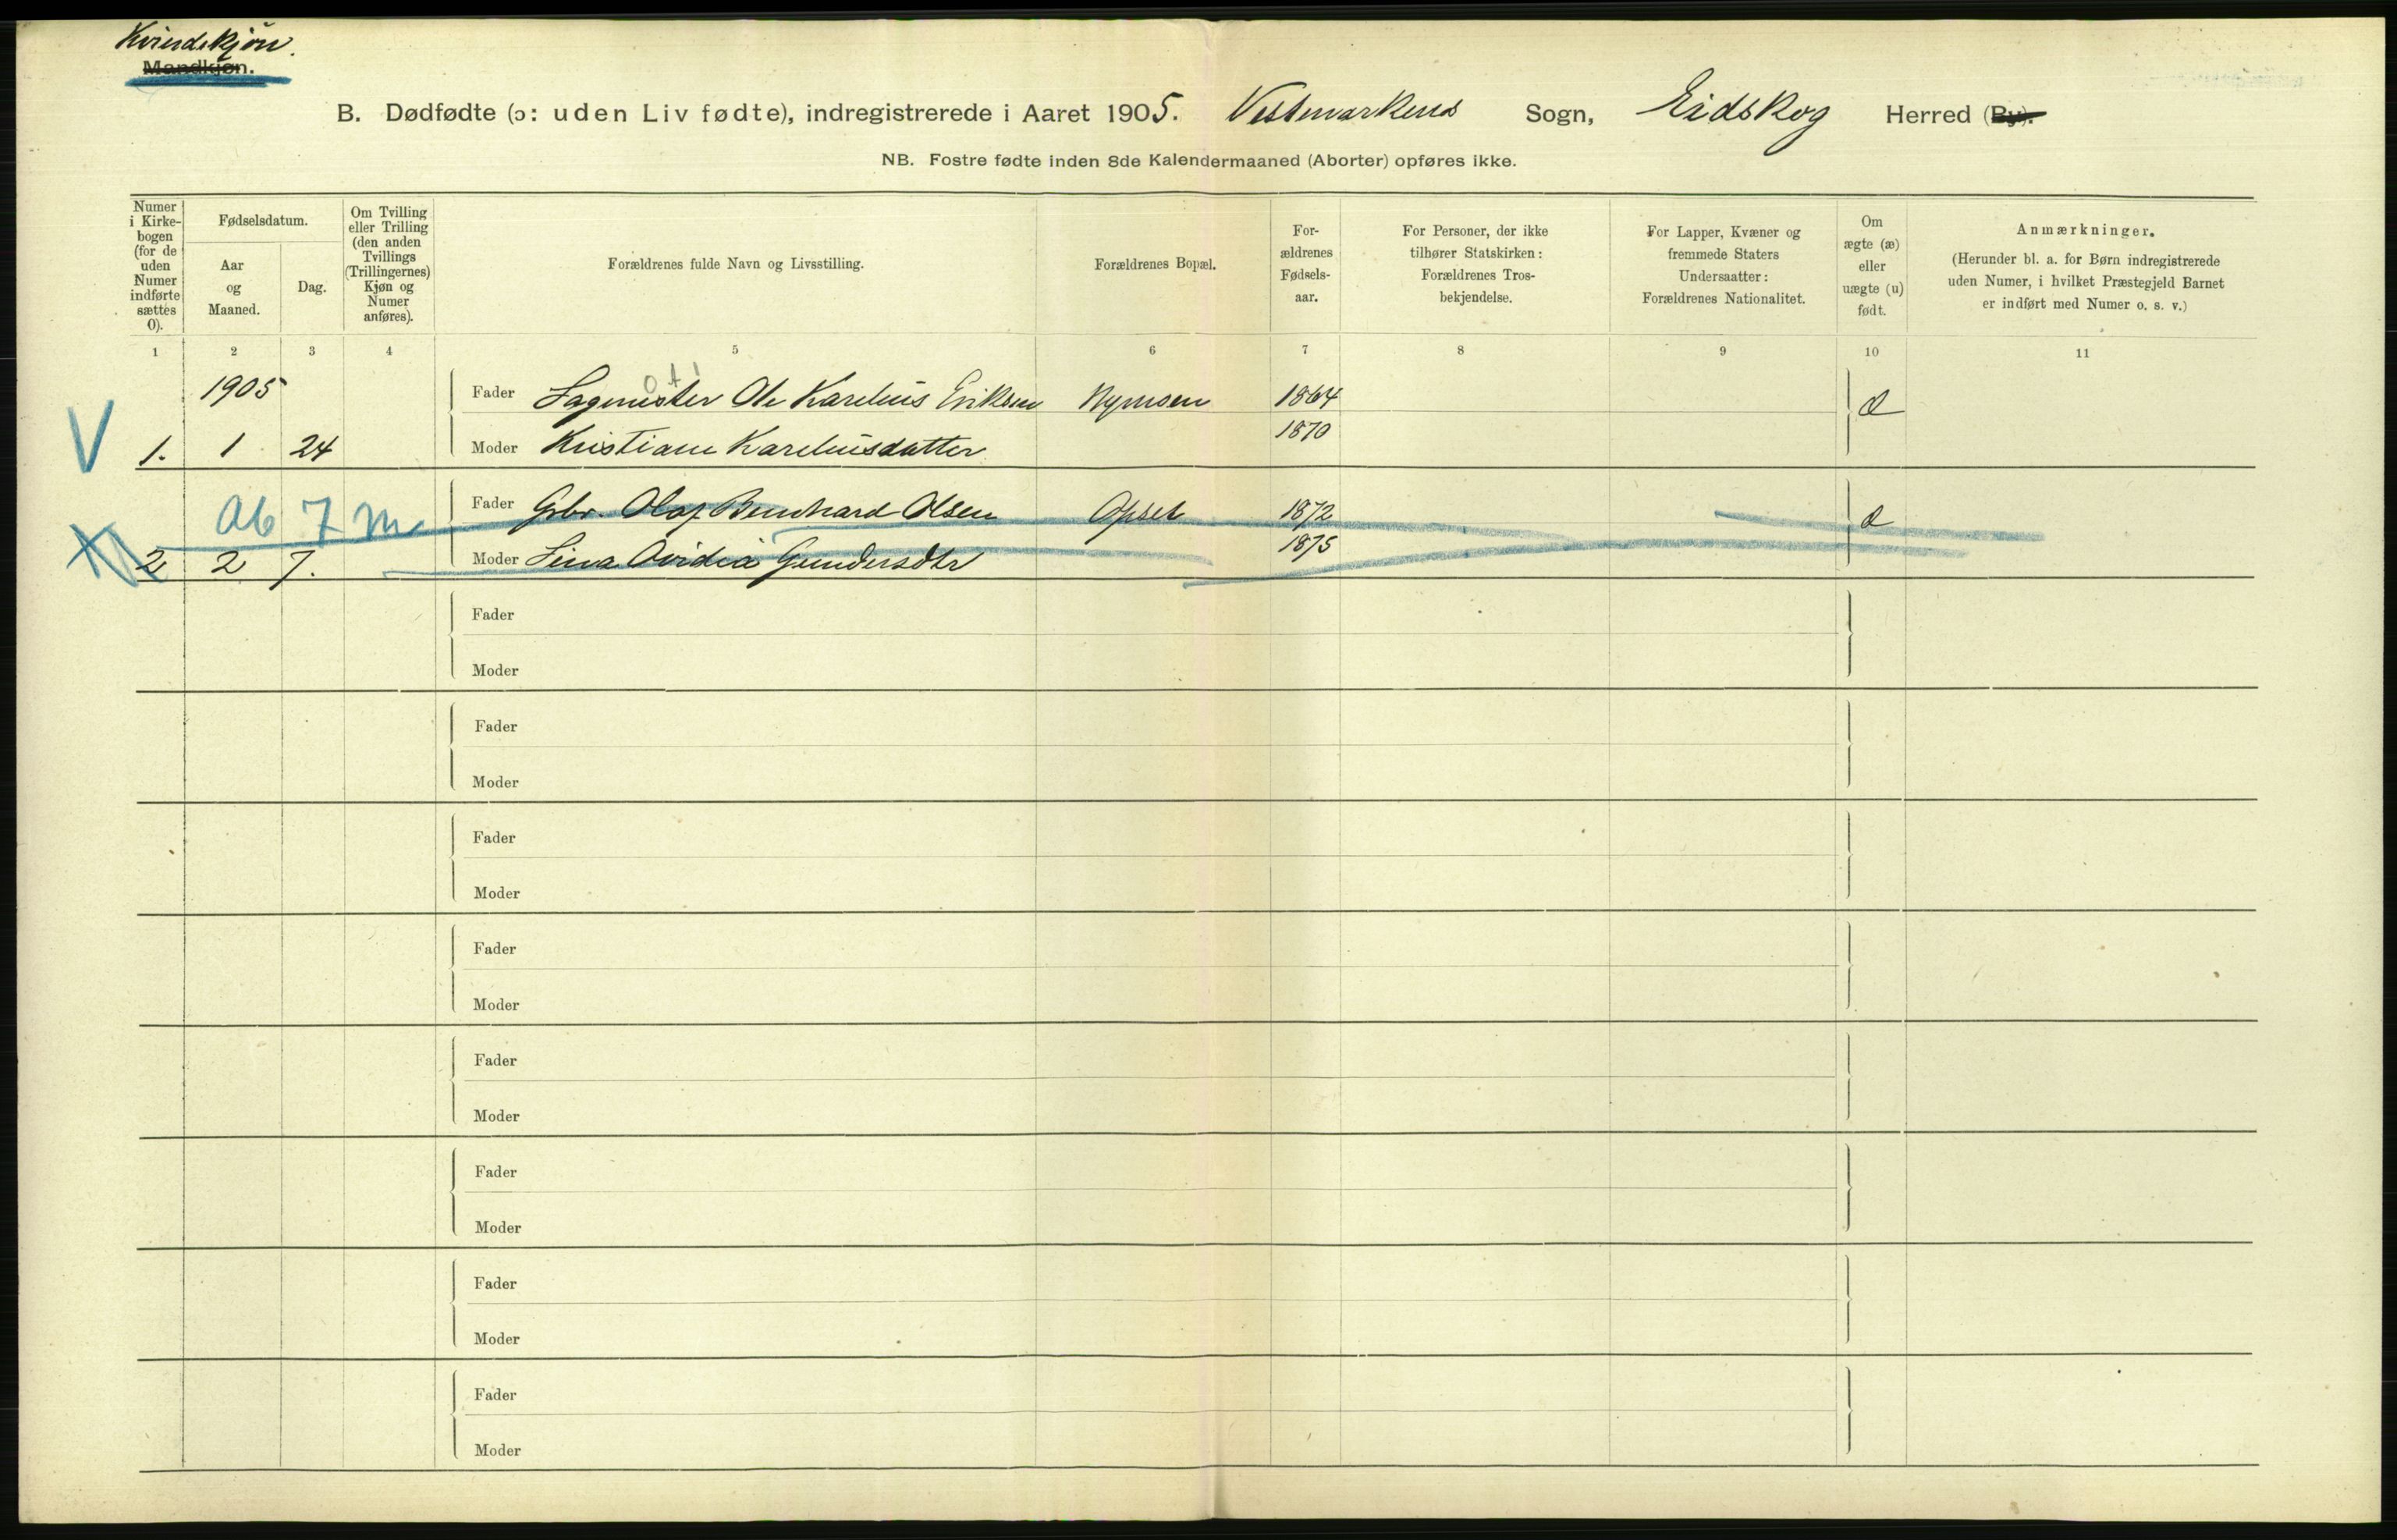 Kvindekjøn.
Mandkjøn.
B. Dødfødte (ɔ: uden Liv fødte), indregistrerede i Aaret 1905. Vestmarkens Sogn, Eidskog Herred (By).
NB. Fostre fødte inden 8de Kalendermaaned (Aborter) opføres ikke.
Numer i Kirke-bogen (for de uden Numer indførte sættes 0).
Fødselsdatum.
Aar og Maaned.
Dag.
Om Tvilling eller Trilling (den anden Tvillings (Trillingernes) Kjøn og Numer anføres).
Forældrenes fulde Navn og Livsstilling.
Forældrenes Bopæl.
For-ældrenes Fødsels-aar.
For Personer, der ikke tilhører Statskirken: Forældrenes Tros-bekjendelse.
For Lapper, Kvæner og fremmede Staters Undersaatter: Forældrenes Nationalitet.
Om ægte (æ) eller uægte (u) født.
Anmærkninger.
(Herunder bl. a. for Børn indregistrerede uden Numer, i hvilket Præstegjeld Barnet er indført med Numer o. s. v.)
1 2 3 4 5 6 7 8 9 10 11
1905 Fader Sagmester Ole Karelius Eriksen 1864 æ
V 1. 1 24 Moder Kristiane Kareliusdatter 1870
Ab 7 m Fader Gbr. Olaf Bernhard Olsen Opset 1872 æ
2 2 7. Moder Lina Ovidia Gundersdtr 1875
Fader
Moder
Fader
Moder
Fader
Moder
Fader
Moder
Fader
Moder
Fader
Moder
Fader
Moder
Fader
Moder